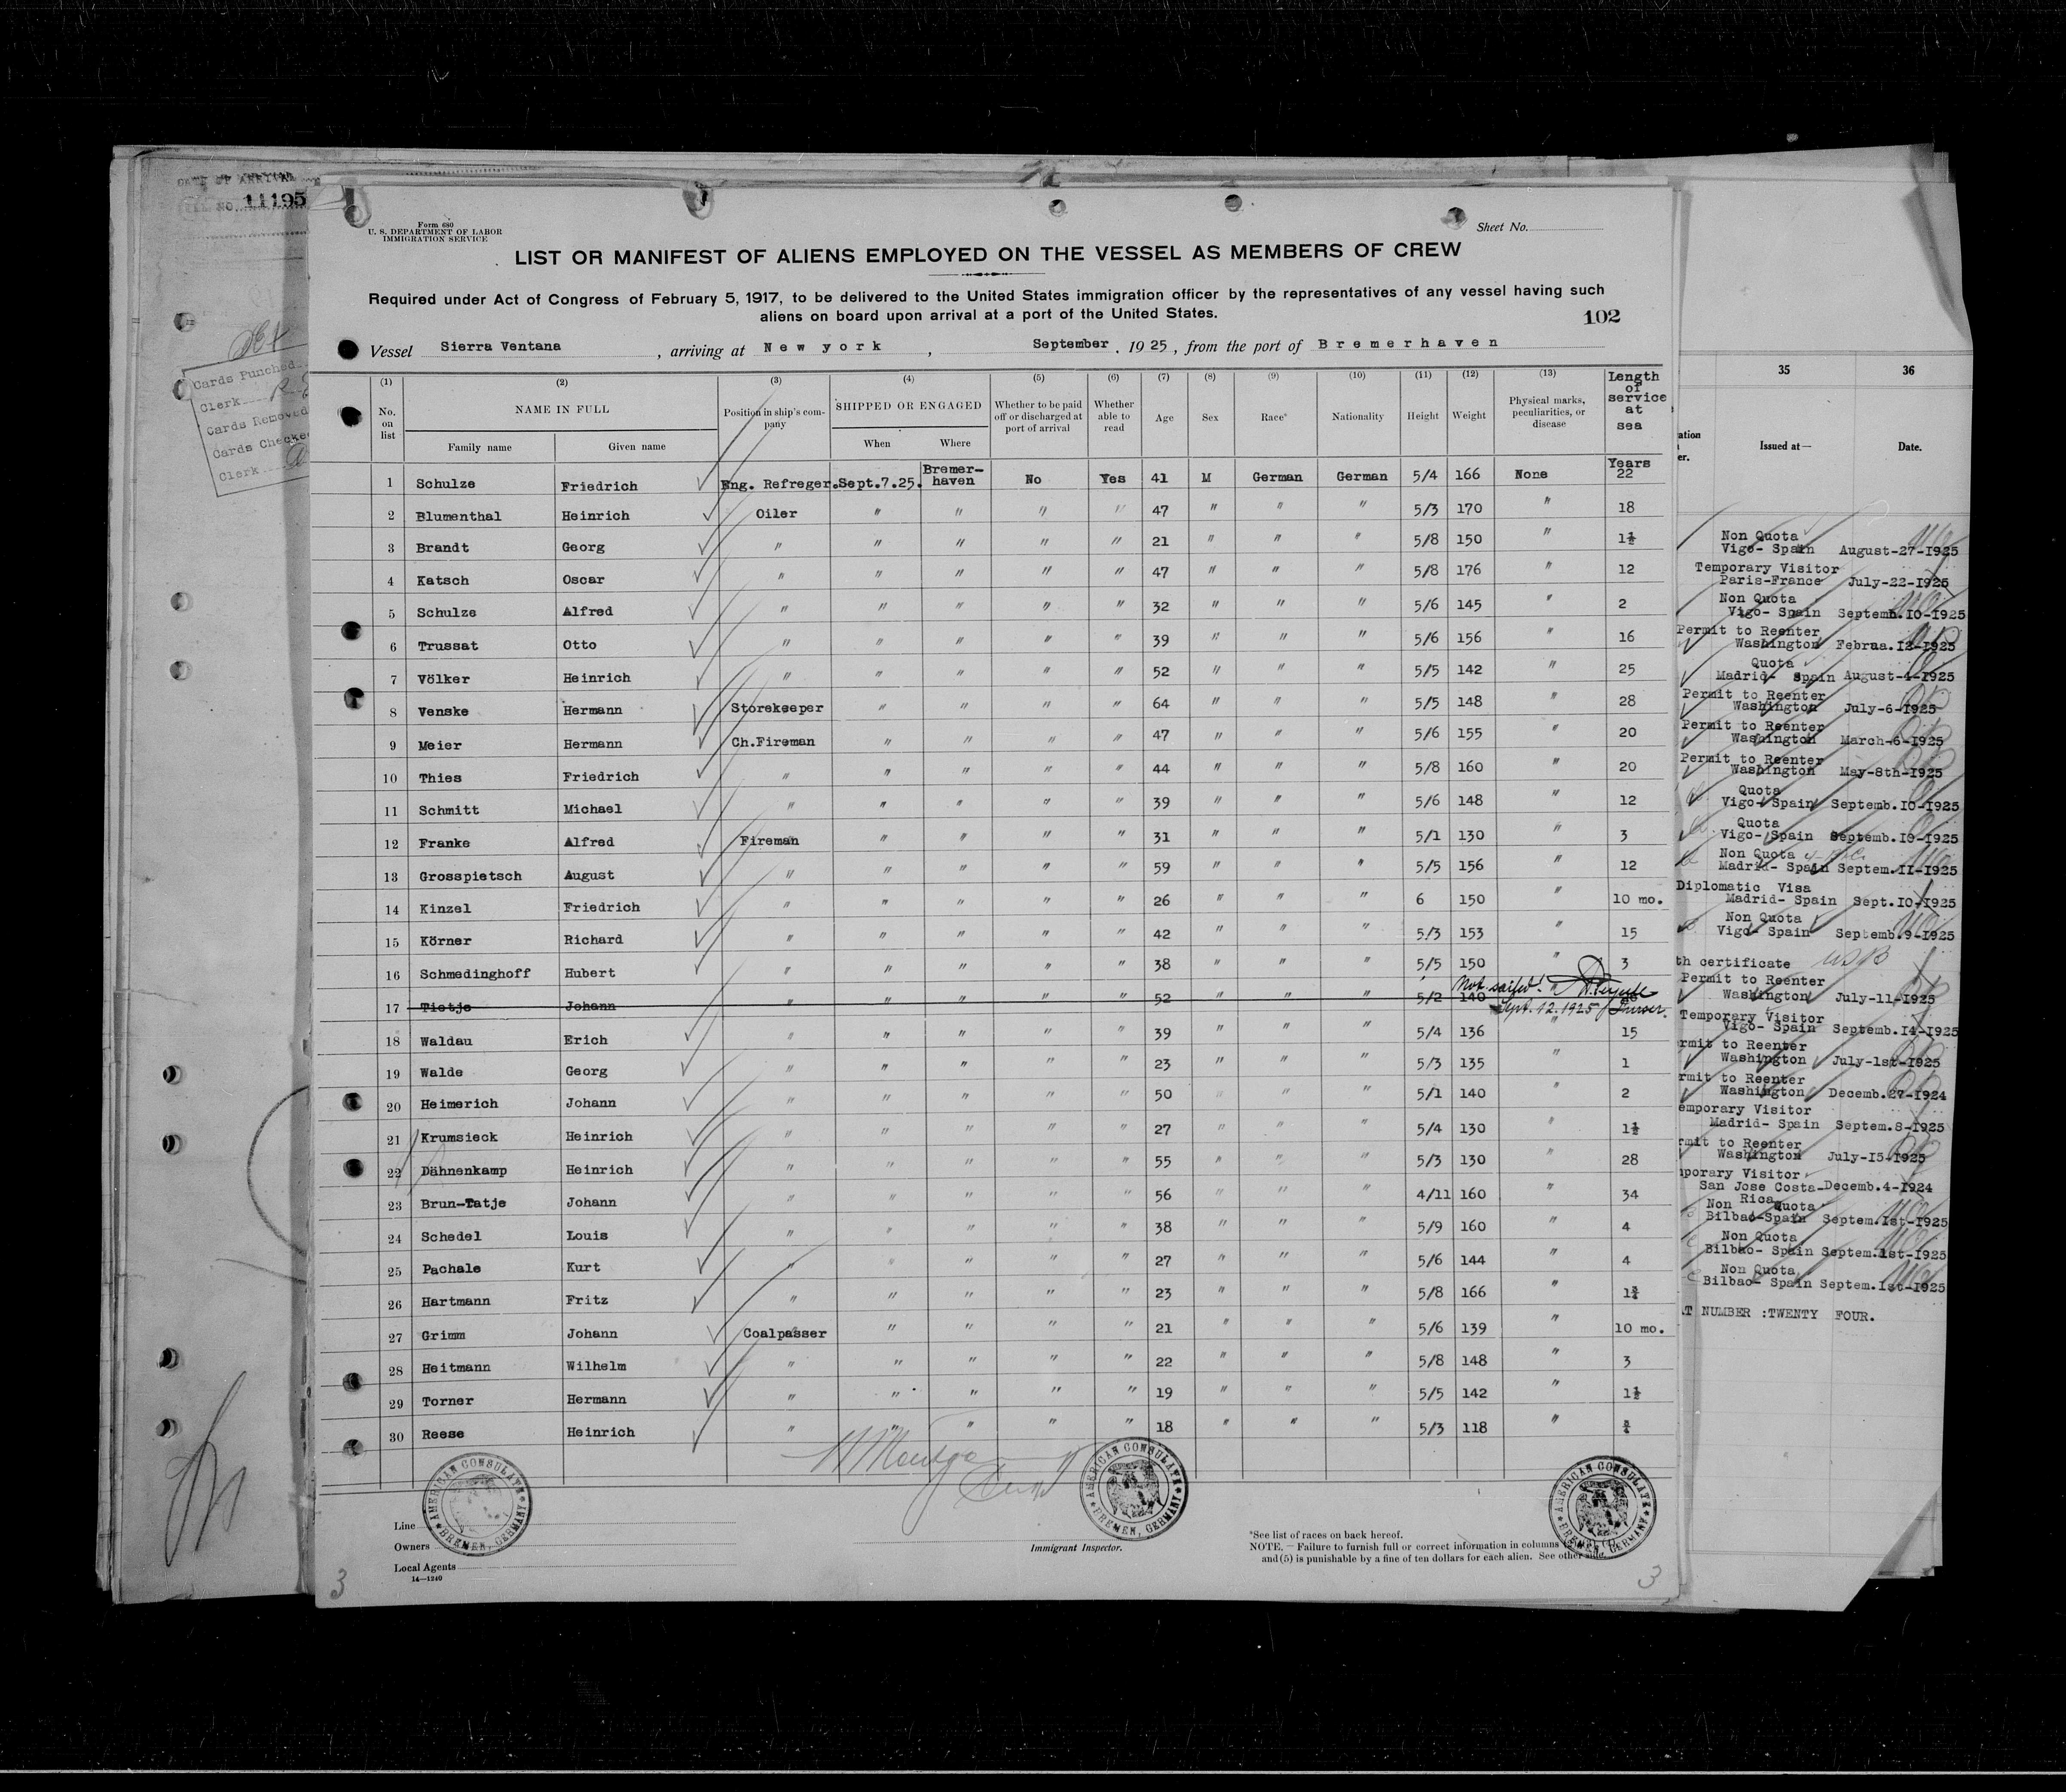 DATE OF ARRIVAL
NO. 11195
Cards Punched
Clerk
Cards Removed
Cards Checke
Clerk
Form 680
U. S. DEPARTMENT OF LABOR
IMMIGRATION SERVICE
Sheet No.
LIST OR MANIFEST OF ALIENS EMPLOYED ON THE VESSEL AS MEMBERS OF CREW
Required under Act of Congress of February 5, 1917, to be delivered to the United States immigration officer by the representatives of any vessel having such
aliens on board upon arrival at a port of the United States.
102
Vessel Sierra Ventana , arriving at New york , September , 1925 , from the port of Bremerhaven
(1) (2) (3) (4) (5) (6) (7) (8) (9) (10) (11) (12) (13) Length of service at sea
No. on list NAME IN FULL Position in ship's company SHIPPED OR ENGAGED Whether to be paid off or discharged at port of arrival Whether able to read Age Sex Race* Nationality Height Weight Physical marks, peculiarities, or disease
Family name Given name When Where
Years
1 Schulze Friedrich Eng. Refreger. Sept.7.25. Bremerhaven No Yes 41 M German German 5/4 166 None 22
2 Blumenthal Heinrich Oiler " " " " 47 " " " 5/3 170 " 18
3 Brandt Georg " " " " " 21 " " " 5/8 150 " 1½
4 Katsch Oscar " " " " " 47 " " " 5/8 176 " 12
5 Schulze Alfred " " " " " 32 " " " 5/6 145 " 2
6 Trussat Otto " " " " " 39 " " " 5/6 156 " 16
7 Völker Heinrich " " " " " 52 " " " 5/5 142 " 25
8 Venske Hermann Storekeeper " " " " 64 " " " 5/5 148 " 28
9 Meier Hermann Ch.Fireman " " " " 47 " " " 5/6 155 " 20
10 Thies Friedrich " " " " " 44 " " " 5/8 160 " 20
11 Schmitt Michael " " " " " 39 " " " 5/6 148 " 12
12 Franke Alfred Fireman " " " " 31 " " " 5/1 130 " 3
13 Grosspietsch August " " " " " 59 " " " 5/5 156 " 12
14 Kinzel Friedrich " " " " " 26 " " " 6 150 " 10 mo.
15 Körner Richard " " " " " 42 " " " 5/3 153 " 15
16 Schmedinghoff Hubert " " " " " 38 " " " 5/5 150 " 3
17 Tietje Johann " " " " " 52 " " " 5/2 140 " Not sailed! Sept. 12. 1925
18 Waldau Erich " " " " " 39 " " " 5/4 136 " 15
19 Walde Georg " " " " " 23 " " " 5/3 135 " 1
20 Heimerich Johann " " " " " 50 " " " 5/1 140 " 2
21 Krumsieck Heinrich " " " " " 27 " " " 5/4 130 " 1½
22 Dähnenkamp Heinrich " " " " " 55 " " " 5/3 130 " 28
23 Brun-Tatje Johann " " " " " 56 " " " 4/11 160 " 34
24 Schedel Louis " " " " " 38 " " " 5/9 160 " 4
25 Pachale Kurt " " " " " 27 " " " 5/6 144 " 4
26 Hartmann Fritz " " " " " 23 " " " 5/8 166 " 1¾
27 Grimm Johann Coalpasser " " " " 21 " " " 5/6 139 " 10 mo.
28 Heitmann Wilhelm " " " " " 22 " " " 5/8 148 " 3
29 Torner Hermann " " " " " 19 " " " 5/5 142 " 1½
30 Reese Heinrich " " " " " 18 " " " 5/3 118 " ¾
AMERICAN CONSULATE BREMEN, GERMANY
AMERICAN CONSULATE BREMEN, GERMANY
AMERICAN CONSULATE BREMEN, GERMANY
Line
Owners
Local Agents
14—1240
Immigrant Inspector.
*See list of races on back hereof.
NOTE.—Failure to furnish full or correct information in columns
and (5) is punishable by a fine of ten dollars for each alien. See other side.
3
3
35 36
ation
er.
Issued at— Date.
Non Quota
Vigo- Spain August-27-1925
Temporary Visitor
Paris-France July-22-1925
Non Quota
Vigo- Spain Septemb.10-1925
Permit to Reenter
Washington Februa.12-1925
Quota
Madrid- Spain August-4-1925
Permit to Reenter
Washington July-6-1925
Permit to Reenter
Washington March-6-1925
Permit to Reenter
Washington May-8th-1925
Quota
Vigo- Spain Septemb.10-1925
Quota
Vigo- Spain Septemb.10-1925
Non Quota
Madrid- Spain Septem.11-1925
Diplomatic Visa
Madrid- Spain Sept.10-1925
Non Quota
Vigo- Spain Septemb.9-1925
th certificate
Permit to Reenter
Washington July-11-1925
Temporary Visitor
Vigo- Spain Septemb.14-1925
rmit to Reenter
Washington July-1st-1925
rmit to Reenter
Washington Decemb.27-1924
emporary Visitor
Madrid- Spain Septem.8-1925
rmit to Reenter
Washington July-15-1925
mporary Visitor
San Jose Costa- Decemb.4-1924
Rica
Non Quota
Bilbao-Spain Septem.1st-1925
Non Quota
Bilbao- Spain Septem.1st-1925
Non Quota
Bilbao- Spain Septem.1st-1925
AT NUMBER :TWENTY FOUR.